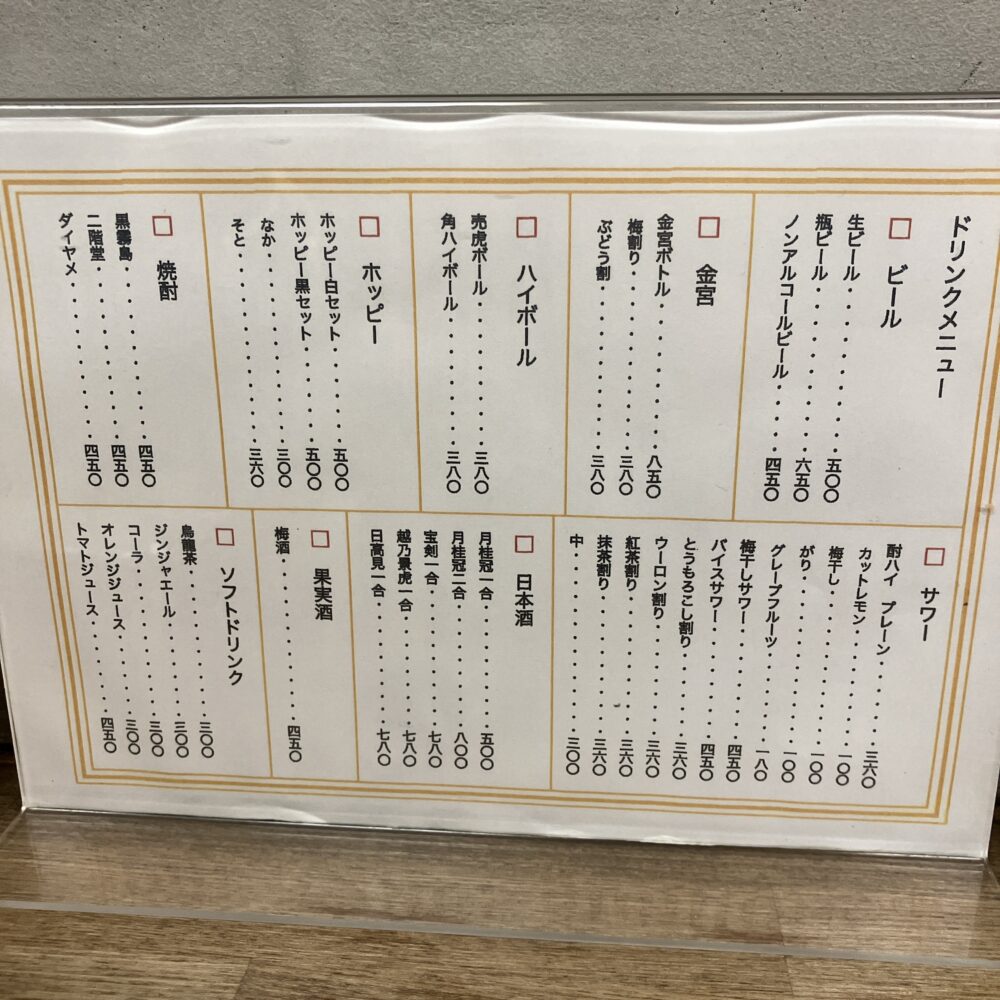 ドリンクメニュー
□ ビール
生ビール・・・・・・・・・・・五〇〇
瓶ビール・・・・・・・・・・・六五〇
ノンアルコールビール・・・・・四五〇
□ 金宮
金宮ボトル・・・・・・・・・・八五〇
梅割り・・・・・・・・・・・・三八〇
ぶどう割・・・・・・・・・・・三八〇
□ ハイボール
売虎ボール・・・・・・・・・・三八〇
角ハイボール・・・・・・・・・三八〇
□ ホッピー
ホッピー白セット・・・・・・・五〇〇
ホッピー黒セット・・・・・・・五〇〇
なか・・・・・・・・・・・・・三〇〇
そと・・・・・・・・・・・・・三六〇
□ 焼酎
黒霧島・・・・・・・・・・・・四五〇
二階堂・・・・・・・・・・・・四五〇
ダイヤメ・・・・・・・・・・・四五〇
□ サワー
酎ハイ プレーン・・・・・・・三六〇
カットレモン・・・・・・・・・一〇〇
梅干し・・・・・・・・・・・・一〇〇
がり・・・・・・・・・・・・・一〇〇
グレープフルーツ・・・・・・・一八〇
梅干しサワー・・・・・・・・・四五〇
バイスサワー・・・・・・・・・四五〇
とうもろこし割り・・・・・・・三六〇
ウーロン割り・・・・・・・・・三六〇
紅茶割り・・・・・・・・・・・三六〇
抹茶割り・・・・・・・・・・・三六〇
中・・・・・・・・・・・・・・三〇〇
□ 日本酒
月桂冠一合・・・・・・・・・・五〇〇
月桂冠二合・・・・・・・・・・八〇〇
宝剣一合・・・・・・・・・・・七八〇
越乃景虎一合・・・・・・・・・七八〇
日高見一合・・・・・・・・・・七八〇
□ 果実酒
梅酒・・・・・・・・・・・・・四五〇
□ ソフトドリンク
烏龍茶・・・・・・・・・・・・三〇〇
ジンジャエール・・・・・・・・三〇〇
コーラ・・・・・・・・・・・・三〇〇
オレンジジュース・・・・・・・三〇〇
トマトジュース・・・・・・・・四五〇